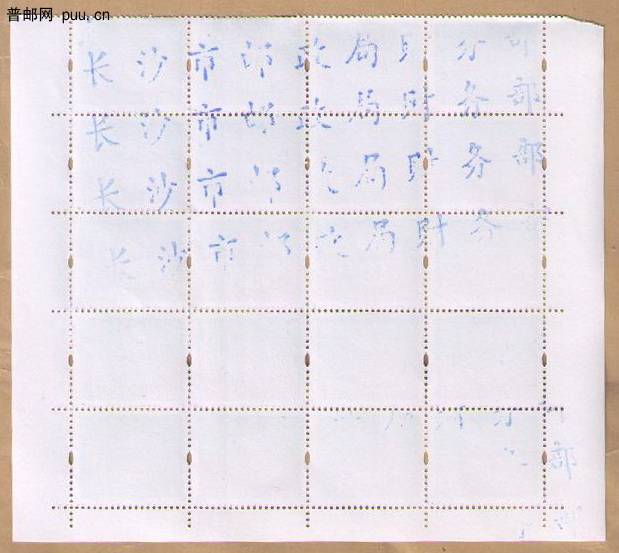 普邮网 puu.cn
长沙市邮政局财务部
长沙市邮政局财务部
长沙市邮政局财务部
长沙市邮政局财务
部